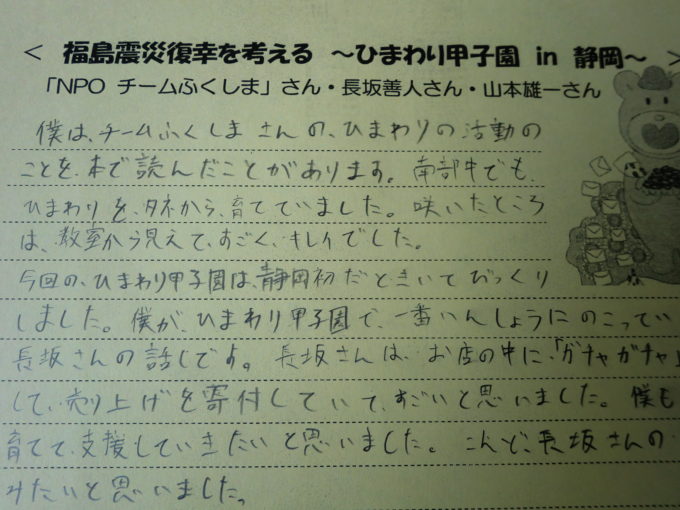 < 福島震災復幸を考える ～ひまわり甲子園 in 静岡～ >
「NPO チームふくしま」さん・長坂善人さん・山本雄一さん
僕は、チームふくしま さんの、ひまわりの活動の
ことを、本で読んだことがあります。南部中でも、
ひまわりを、タネから、育てていました。咲いたところ
は、教室から見えて、すごく、キレイでした。
今回の、ひまわり甲子園は、静岡初だときいてびっくり
しました。僕が、ひまわり甲子園で、一番いんしょうにのこってい
長坂さんの話しです。長坂さんは、お店の中に、「ガチャガチャ」
して、売り上げを寄付していて、すごいと思いました。僕も
育てて、支援していきたいと思いました。こんど、長坂さんの
みたいと思いました。